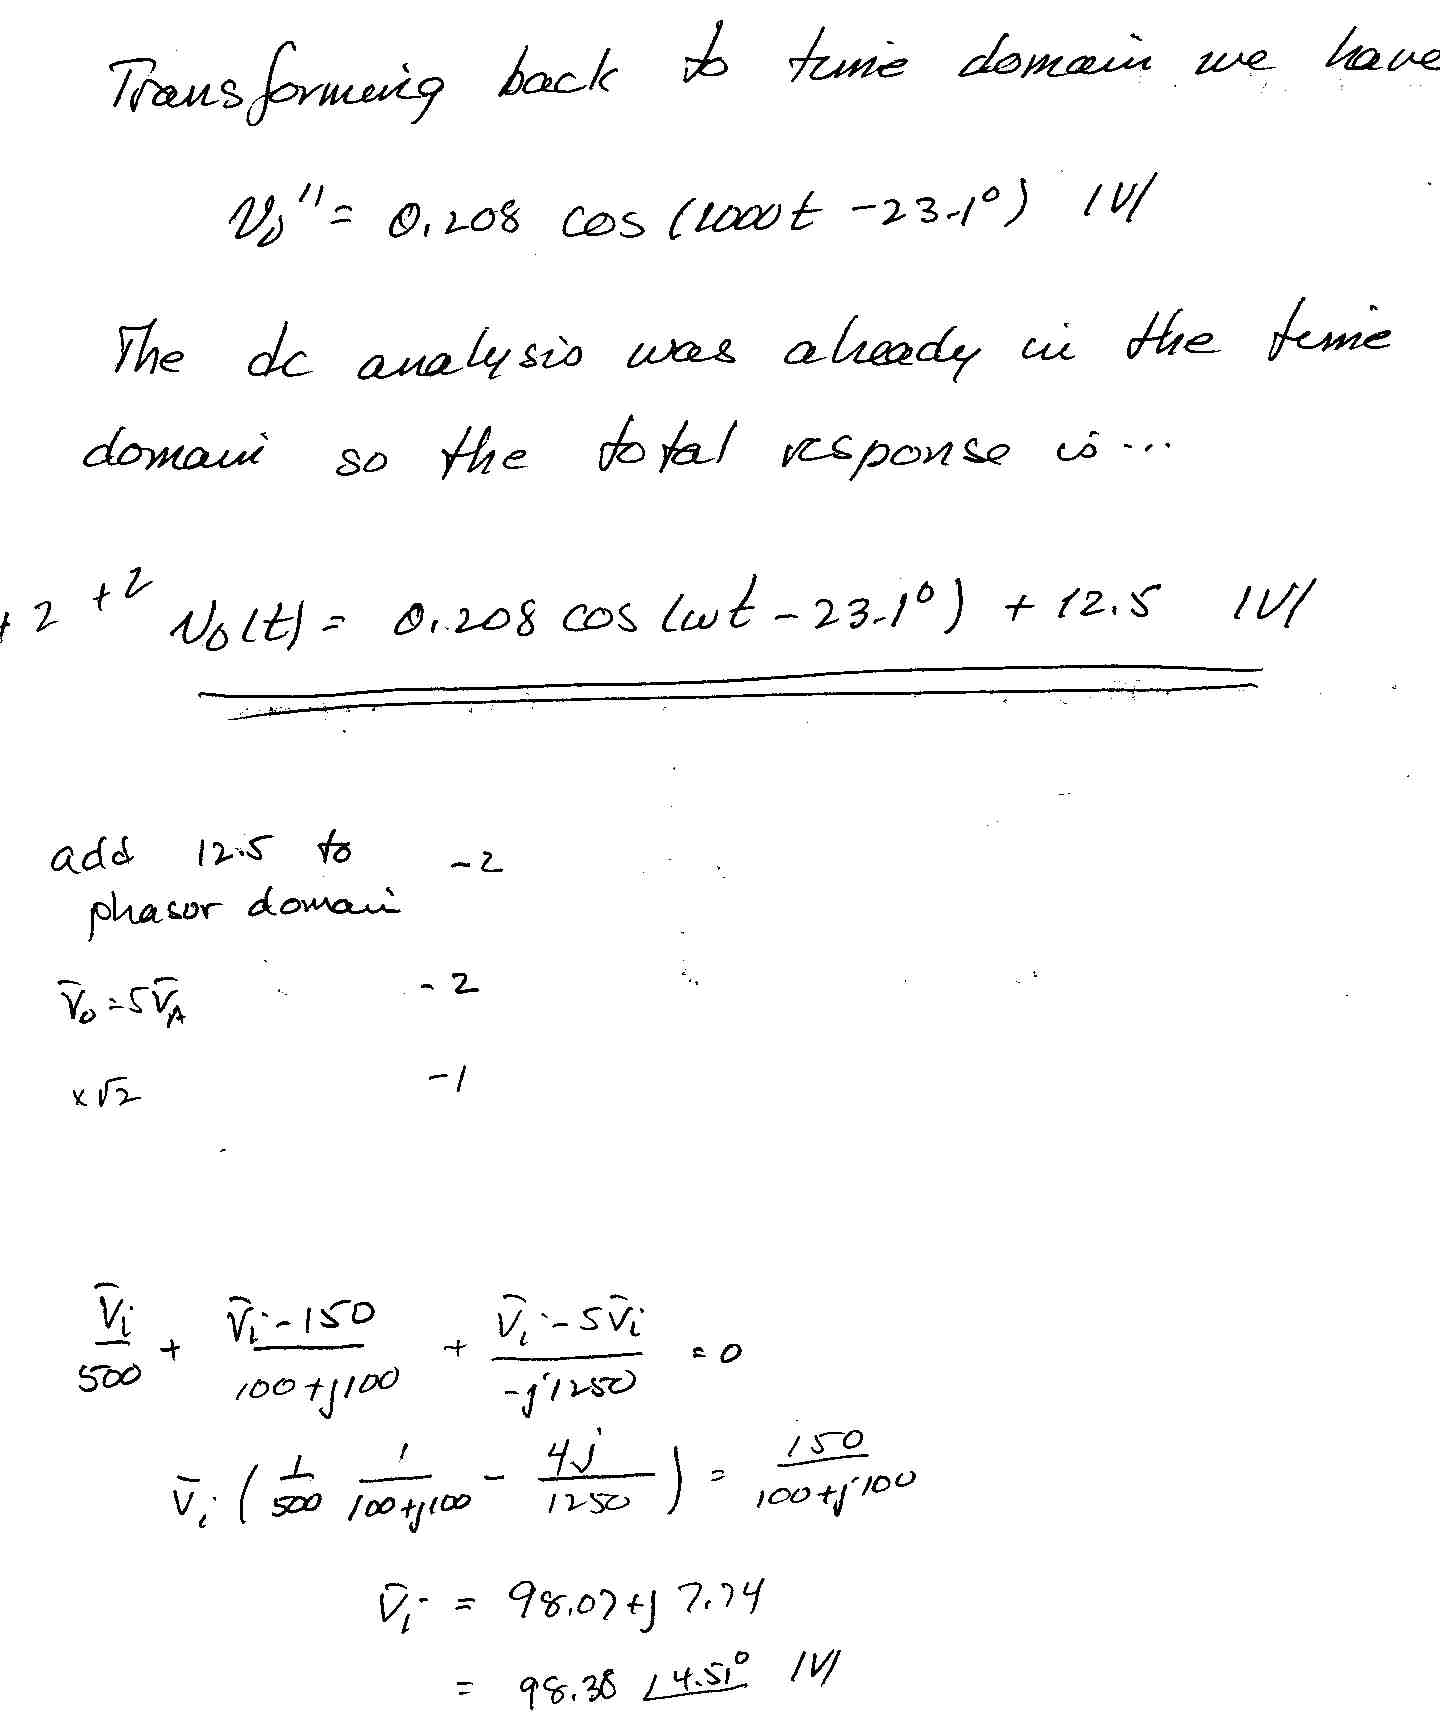 Transforming back to time domain we have
v₀'' = 0.208 cos (1000t - 23.1°) |V|
The dc analysis was already in the time
domain so the total response is ...
+2 +2 v₀(t) = 0.208 cos (ωt - 23.1°) + 12.5 |V|
add 12.5 to -2
phasor domain
V̄₀ = 5V̄_A -2
x√2 -1
V̄ᵢ/500 + (V̄ᵢ - 150)/(100 + j100) + (V̄ᵢ - 5V̄ᵢ)/(-j1250) = 0
V̄ᵢ (1/500 1/(100 + j100) - 4j/1250) = 150/(100 + j100)
V̄ᵢ = 98.07 + j 7.74
= 98.38 ∠4.51° |V|